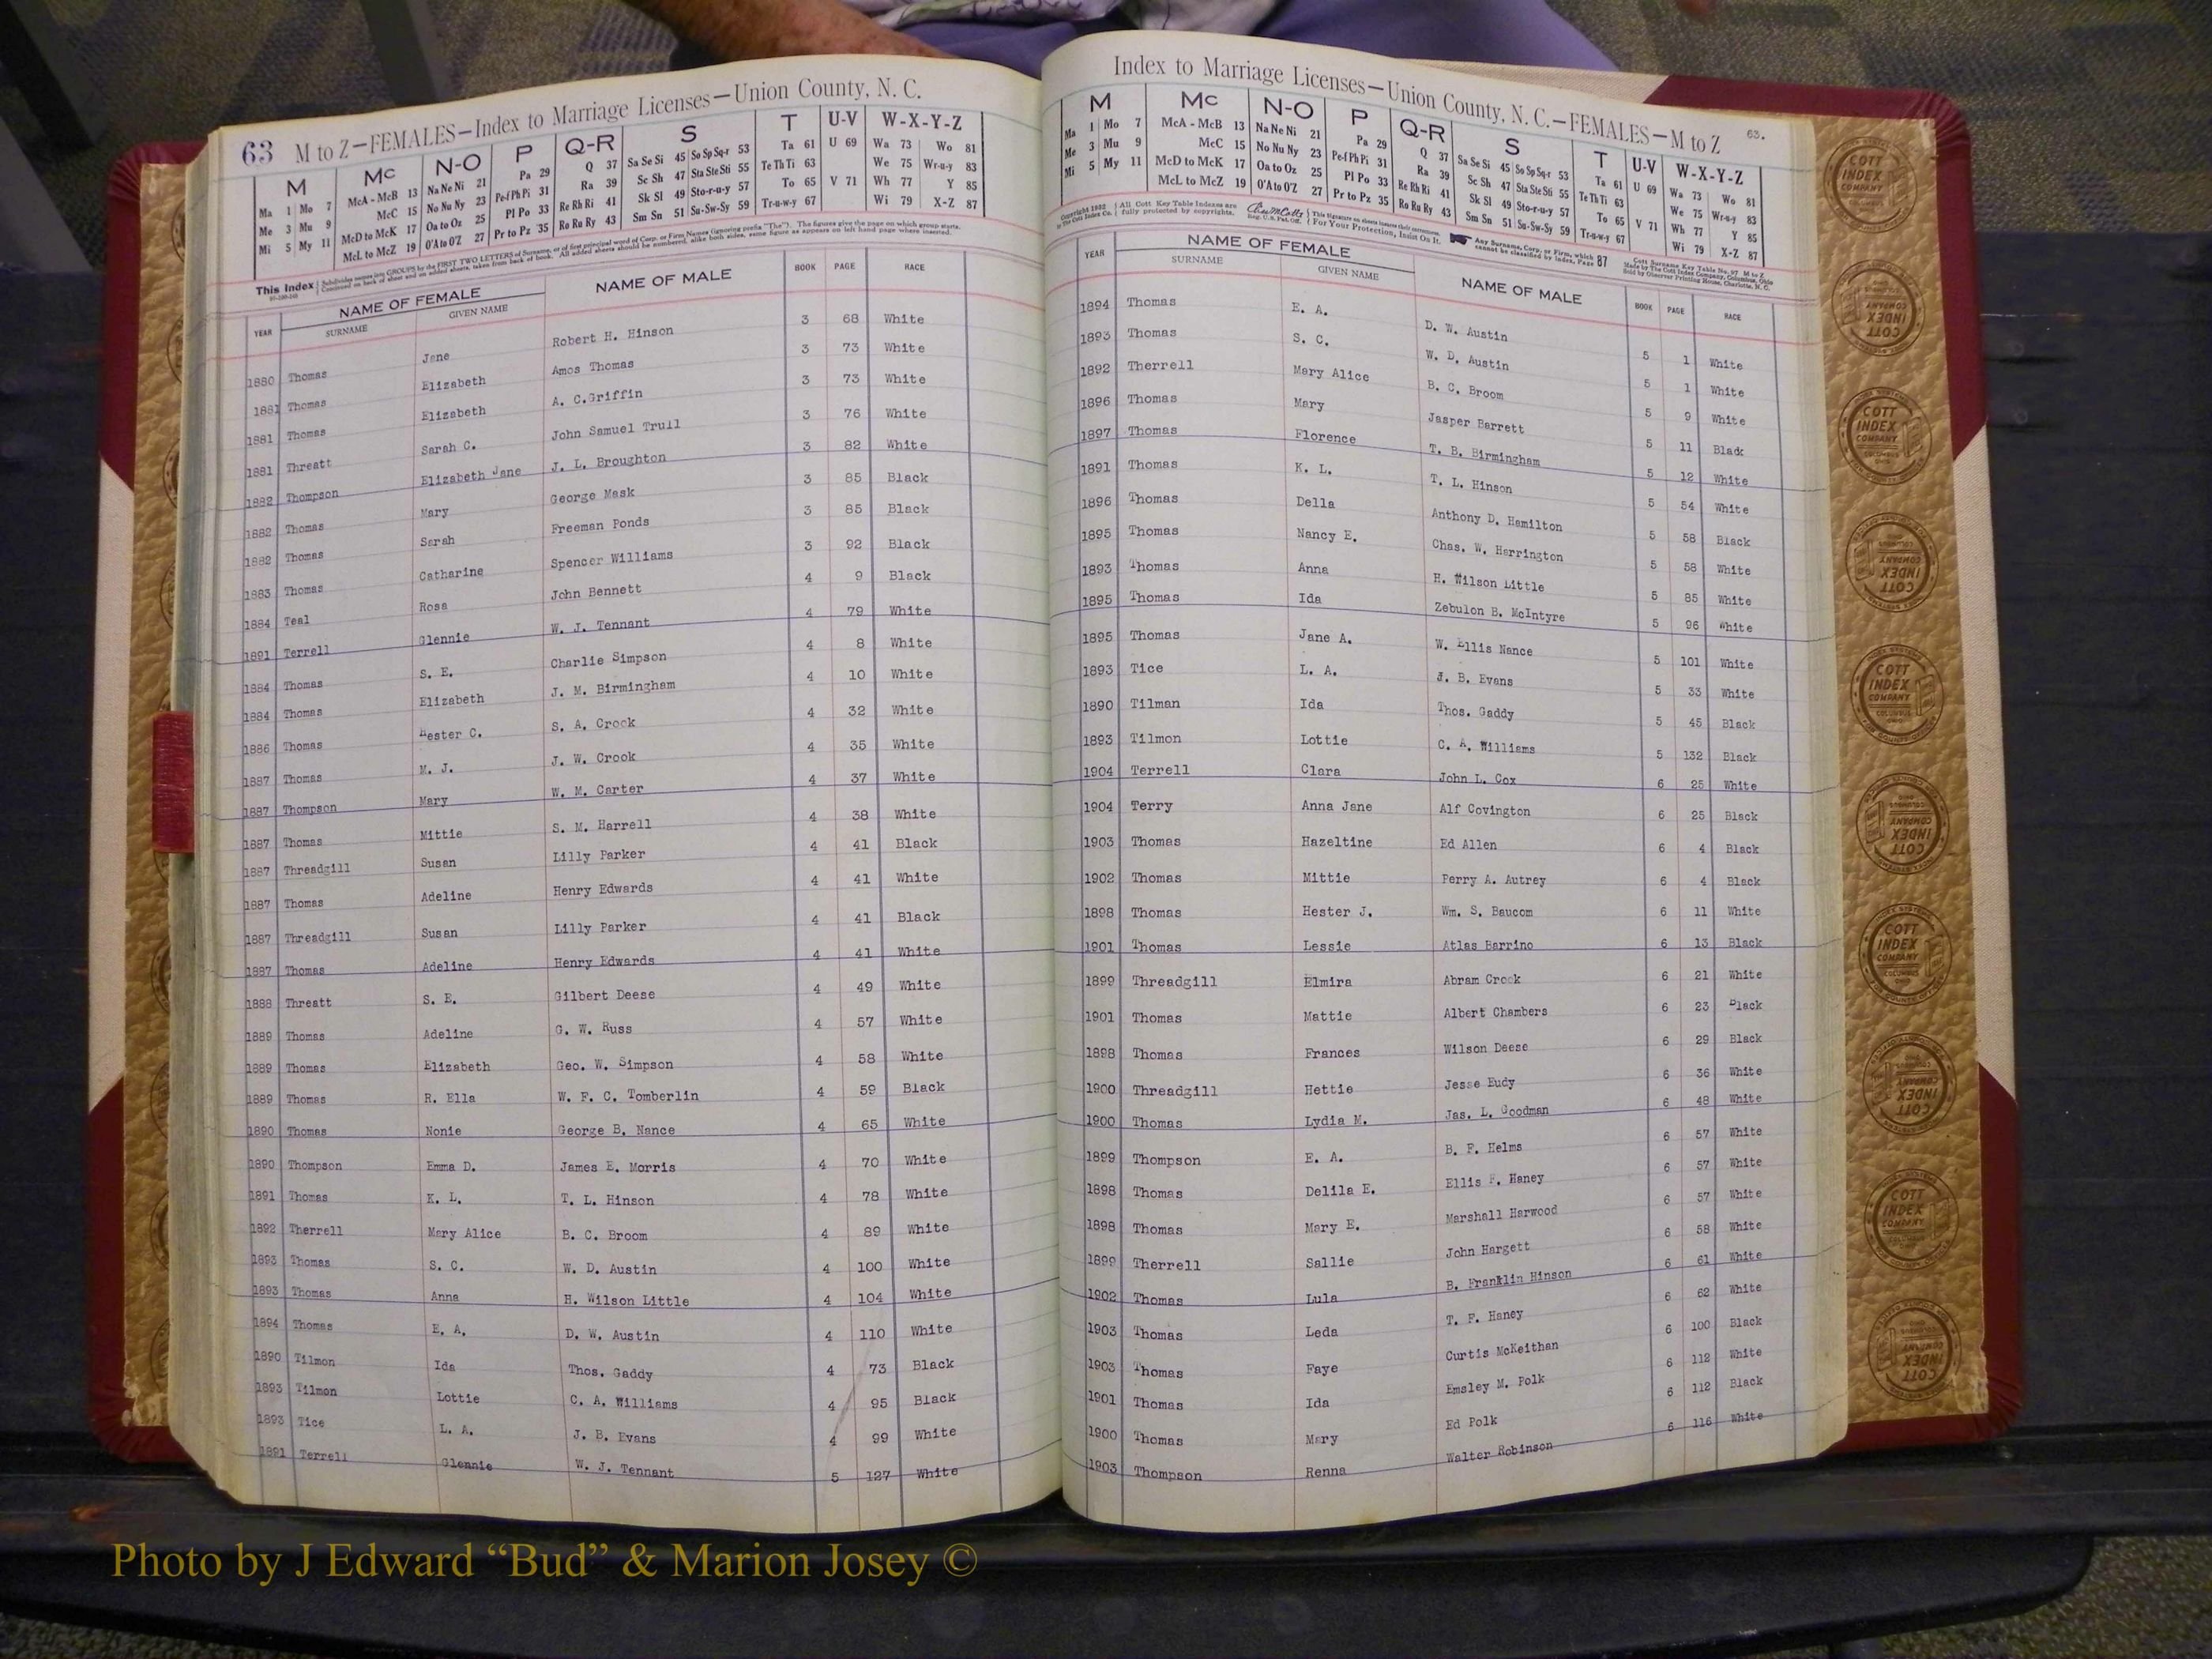 63 M to Z—FEMALES—Index to Marriage Licenses—Union County, N. C.
M Mc N-O P Q-R S T U-V W-X-Y-Z
Ma 1 Mo 7 McA - McB 13 Na Ne Ni 21 Pa 29 Q 37 Sa Se Si 45 So Sp Sq-r 53 Ta 61 U 69 Wa 73 Wo 81
Me 3 Mu 9 McC 15 No Nu Ny 23 Pe-f Ph Pi 31 Ra 39 Sc Sh 47 Sta Ste Sti 55 Te Th Ti 63 We 75 Wr-u-y 83
Mi 5 My 11 McD to McK 17 Oa to Oz 25 Pl Po 33 Re Rh Ri 41 Sk Sl 49 Sto-r-u-y 57 To 65 V 71 Wh 77 Y 85
McL to McZ 19 O'A to O'Z 27 Pr to Pz 35 Ro Ru Ry 43 Sm Sn 51 Su-Sw-Sy 59 Tr-u-w-y 67 Wi 79 X-Z 87
This Index Subdivides names into GROUPS by the FIRST TWO LETTERS of Surname, or of first principal word of Corp. or Firm Names (ignoring prefix "The"). The figures give the page on which group starts.
Continued on back of sheet and on added sheets, taken from back of book. All added sheets should be numbered, alike both sides, same figure as appears on left hand page where inserted.
YEAR NAME OF FEMALE NAME OF MALE BOOK PAGE RACE
SURNAME GIVEN NAME
1880 Thomas Jane Robert H. Hinson 3 68 White
1881 Thomas Elizabeth Amos Thomas 3 73 White
1881 Thomas Elizabeth A. C.Griffin 3 73 White
1881 Threatt Sarah C. John Samuel Trull 3 76 White
1882 Thompson Elizabeth Jane J. L. Broughton 3 82 White
1882 Thomas Mary George Mask 3 85 Black
1882 Thomas Sarah Freeman Ponds 3 85 Black
1883 Thomas Catharine Spencer Williams 3 92 Black
1884 Teal Rosa John Bennett 4 9 Black
1891 Terrell Glennie W. J. Tennant 4 79 White
1884 Thomas S. E. Charlie Simpson 4 8 White
1884 Thomas Elizabeth J. M. Birmingham 4 10 White
1886 Thomas Hester C. S. A. Crock 4 32 White
1887 Thomas M. J. J. W. Crook 4 35 White
1887 Thompson Mary W. M. Carter 4 37 White
1887 Thomas Mittie S. M. Harrell 4 38 White
1887 Threadgill Susan Lilly Parker 4 41 Black
1887 Thomas Adeline Henry Edwards 4 41 White
1887 Threadgill Susan Lilly Parker 4 41 Black
1887 Thomas Adeline Henry Edwards 4 41 White
1888 Threatt S. E. Gilbert Deese 4 49 White
1889 Thomas Adeline G. W. Russ 4 57 White
1889 Thomas Elizabeth Geo. W. Simpson 4 58 White
1889 Thomas R. Ella W. F. C. Tomberlin 4 59 Black
1890 Thomas Nonie George B. Nance 4 65 White
1890 Thompson Emma D. James E. Morris 4 70 White
1891 Thomas K. L. T. L. Hinson 4 78 White
1892 Therrell Mary Alice B. C. Broom 4 89 White
1893 Thomas S. C. W. D. Austin 4 100 White
1893 Thomas Anna H. Wilson Little 4 104 White
1894 Thomas E. A. D. W. Austin 4 110 White
1890 Tilmon Ida Thos. Gaddy 4 73 Black
1893 Tilmon Lottie C. A. Williams 4 95 Black
1893 Tice L. A. J. B. Evans 4 99 White
1891 Terrell Glennie W. J. Tennant 5 127 White
Index to Marriage Licenses—Union County, N. C.—FEMALES—M to Z 63.
M Mc N-O P Q-R S T U-V W-X-Y-Z
Ma 1 Mo 7 McA - McB 13 Na Ne Ni 21 Pa 29 Q 37 Sa Se Si 45 So Sp Sq-r 53 Ta 61 U 69 Wa 73 Wo 81
Me 3 Mu 9 McC 15 No Nu Ny 23 Pe-f Ph Pi 31 Ra 39 Sc Sh 47 Sta Ste Sti 55 Te Th Ti 63 We 75 Wr-u-y 83
Mi 5 My 11 McD to McK 17 Oa to Oz 25 Pl Po 33 Re Rh Ri 41 Sk Sl 49 Sto-r-u-y 57 To 65 V 71 Wh 77 Y 85
McL to McZ 19 O'A to O'Z 27 Pr to Pz 35 Ro Ru Ry 43 Sm Sn 51 Su-Sw-Sy 59 Tr-u-w-y 67 Wi 79 X-Z 87
All Cott Key Table Indexes are fully protected by copyrights. This Signature on sheets insures their correctness. For Your Protection, Insist On It. Any Surname, Corp. or Firm, which cannot be classified by Index, Page 87
YEAR NAME OF FEMALE NAME OF MALE BOOK PAGE RACE
SURNAME GIVEN NAME
1894 Thomas E. A. D. W. Austin 5 1 White
1893 Thomas S. C. W. D. Austin 5 1 White
1892 Therrell Mary Alice B. C. Broom 5 9 White
1896 Thomas Mary Jasper Barrett 5 11 Black
1897 Thomas Florence T. B. Birmingham 5 12 White
1891 Thomas K. L. T. L. Hinson 5 54 White
1896 Thomas Della Anthony D. Hamilton 5 58 Black
1895 Thomas Nancy E. Chas. W. Harrington 5 58 White
1893 Thomas Anna H. Wilson Little 5 85 White
1895 Thomas Ida Zebulon B. McIntyre 5 96 White
1895 Thomas Jane A. W. Ellis Nance 5 101 White
1893 Tice L. A. J. B. Evans 5 33 White
1890 Tilman Ida Thos. Gaddy 5 45 Black
1893 Tilmon Lottie C. A. Williams 5 132 Black
1904 Terrell Clara John L. Cox 6 25 White
1904 Terry Anna Jane Alf Covington 6 25 Black
1903 Thomas Hazeltine Ed Allen 6 4 Black
1902 Thomas Mittie Perry A. Autrey 6 4 Black
1898 Thomas Hester J. Wm. S. Baucom 6 11 White
1901 Thomas Lessie Atlas Barrino 6 13 Black
1899 Threadgill Elmira Abram Crook 6 21 White
1901 Thomas Mattie Albert Chambers 6 23 Black
1898 Thomas Frances Wilson Deese 6 29 Black
1900 Threadgill Hettie Jesse Eudy 6 36 White
1900 Thomas Lydia M. Jas. L. Goodman 6 48 White
1899 Thompson E. A. B. F. Helms 6 57 White
1898 Thomas Delila E. Ellis F. Haney 6 57 White
1898 Thomas Mary E. Marshall Harwood 6 57 White
1899 Therrell Sallie John Hargett 6 58 White
1902 Thomas Lula B. Franklin Hinson 6 61 White
1903 Thomas Leda T. F. Haney 6 62 White
1903 Thomas Faye Curtis McKeithan 6 100 Black
1901 Thomas Ida Emsley M. Polk 6 112 White
1900 Thomas Mary Ed Polk 6 112 Black
1903 Thompson Renna Walter Robinson 6 116 White
COTT INDEX COMPANY
Photo by J Edward “Bud” & Marion Josey ©